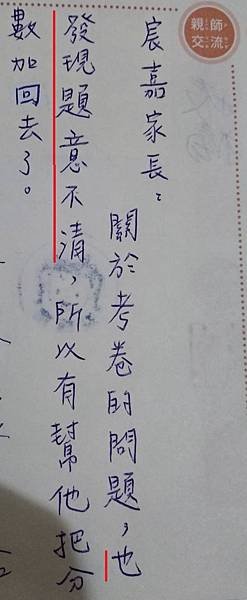 親師
交流
宸嘉家長：
關於考卷的問題，也
發現題意不清，所以有幫他把分
數加回去了。